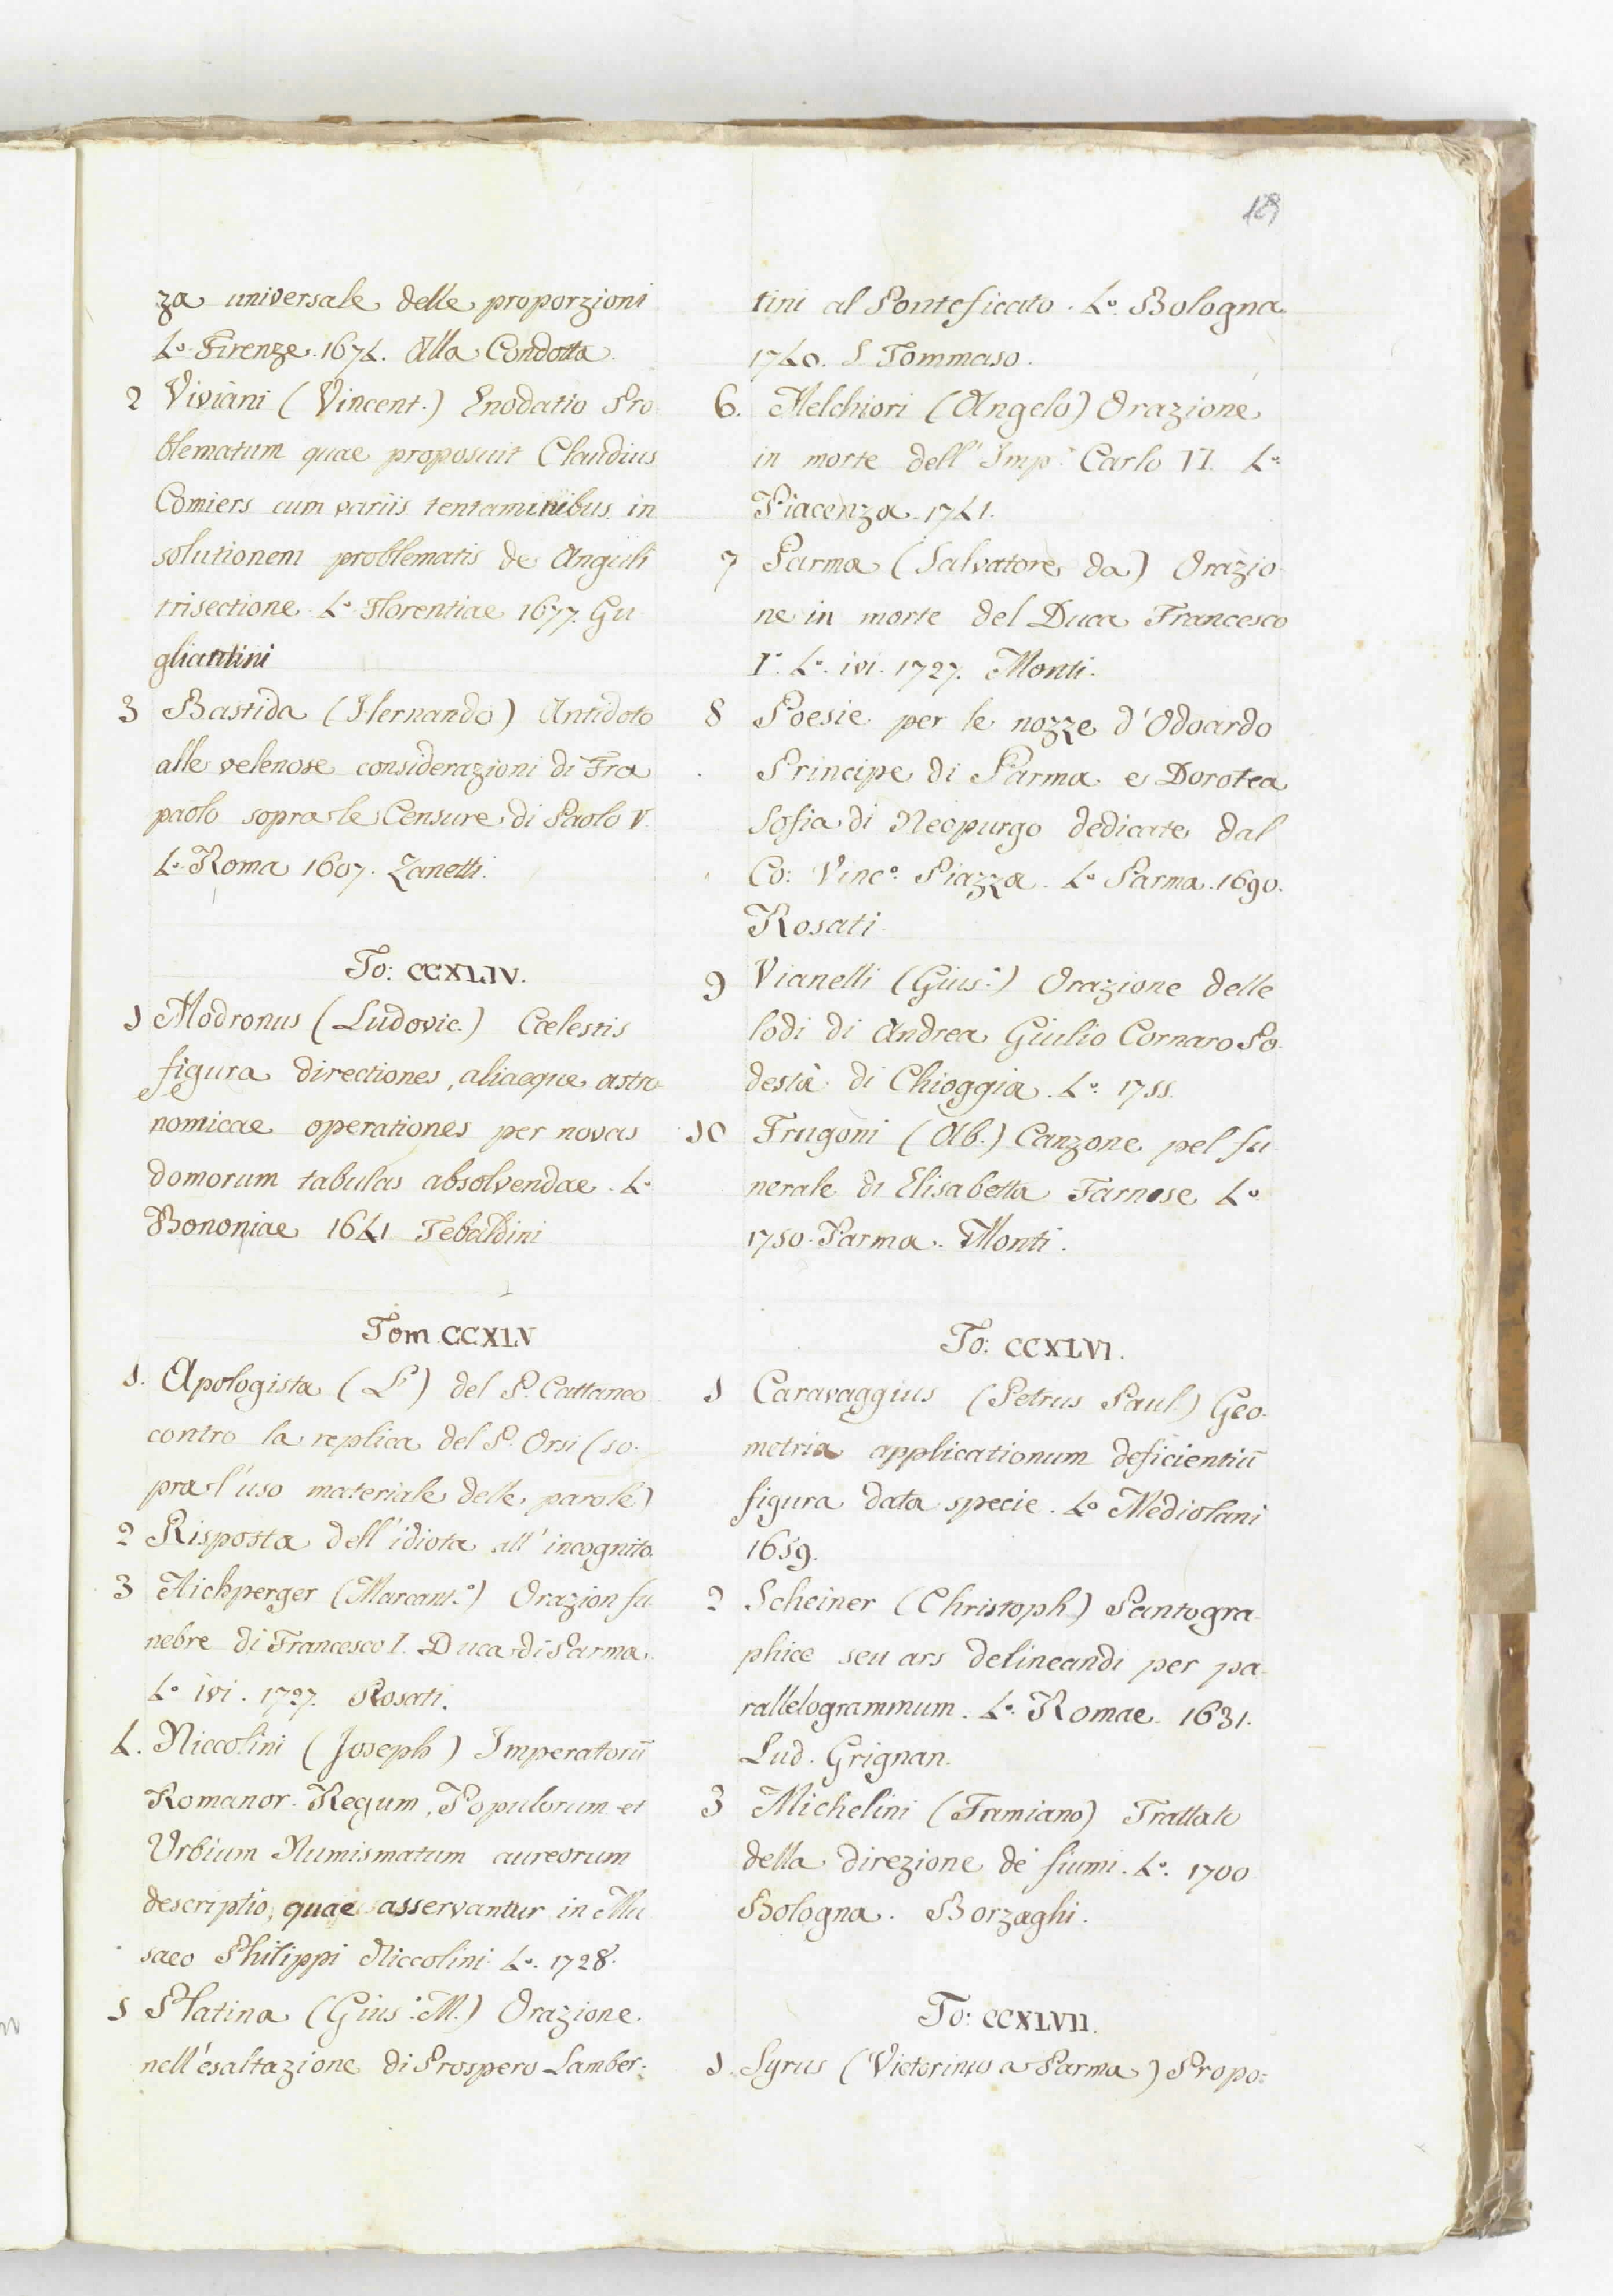 129
za universale delle proporzioni
4.º Firenze. 1674. Alla Condotta.
2 Viviani (Vincent.) Enodatio Pro-
blematum quae proposuit Claudius
Comiers cum variis tentaminibus in
solutionem problematis de Anguli
trisectione 4.º Florentiae 1677. Gu-
gliantini
3 Bastida (Hernando) Antidoto
alle velenose considerazioni di Fra
paolo sopra le Censure di Paolo V.
4.º Roma 1607. Zanetti.
To: CCXLIV.
1 Modronus (Ludovic.) Cælestis
figura directiones, aliaeque astro-
nomicae operationes per novas
domorum tabulas absolvendae. 4.º
Bononiae 1641 Tebaldini
Tom. CCXLV
1. Apologista (L') del P. Cattaneo
contro la replica del P. Orsi (so-
pra l'uso materiale delle parole)
2 Risposta dell'idiota all'incognito.
3 Aichperger (Marcant.º) Orazion fu-
nebre di Francesco I. Duca di Parma.
4.º ivi. 1727. Rosati.
4. Niccolini (Joseph) Imperatorū
Romanor. Regum, Populorum et
Urbium Numismatum aureorum
descriptio, quae asservantur in Mu
saeo Philippi Niccolini. 4.º 1728.
5 Platina (Gius.e M.) Orazione.
nell'esaltazione di Prospero Lamber-
tini al Ponteficato. 4.º Bologna
1740. S. Tommaso.
6. Melchiori (Angelo) Orazione
in morte dell'Imp.r Carlo VI. 4.º
Piacenza. 1741.
7 Parma (Salvatore da) Orazio-
ne in morte del Duca Francesco
I.º 4.º ivi. 1727. Monti.
8 Poesie per le nozze d'Odoardo
Principe di Parma e Dorotea
Sofia di Neopurgo dedicate dal
Co: Vinc.º Piazza. 4.º Parma. 1690.
Rosati.
9 Vianelli (Gius.e) Orazione delle
lodi di Andrea Giulio Cornaro Po-
destà di Chioggia. 4.º 1755.
10 Frugoni (Ab.) Canzone pel fu
nerale di Elisabetta Farnese 4.º
1750. Parma. Monti.
To: CCXLVI.
1 Caravaggius (Petrus Paul.) Geo-
metria applicationum deficientiū
figura data specie. 4.º Mediolani
1659.
2 Scheiner (Christoph.) Pantogra-
phice seu ars delineandi per pa-
rallelogrammum. 4.º Romae. 1631.
Lud. Grignan.
3 Michelini (Famiano) Trattato
della direzione de' fiumi. 4.º 1700
Bologna. Borzaghi.
To: CCXLVII.
1. Syrus (Victorinus a Parma) Propo-